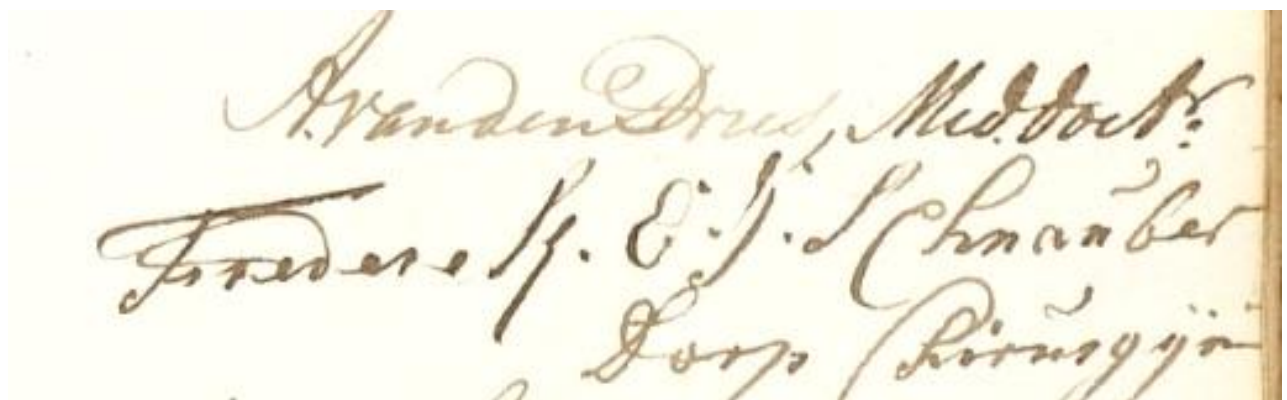 A. van den Dries, Med. Doct.r
Frederik. E. J. Schnauber
Dorp Chirurgijn